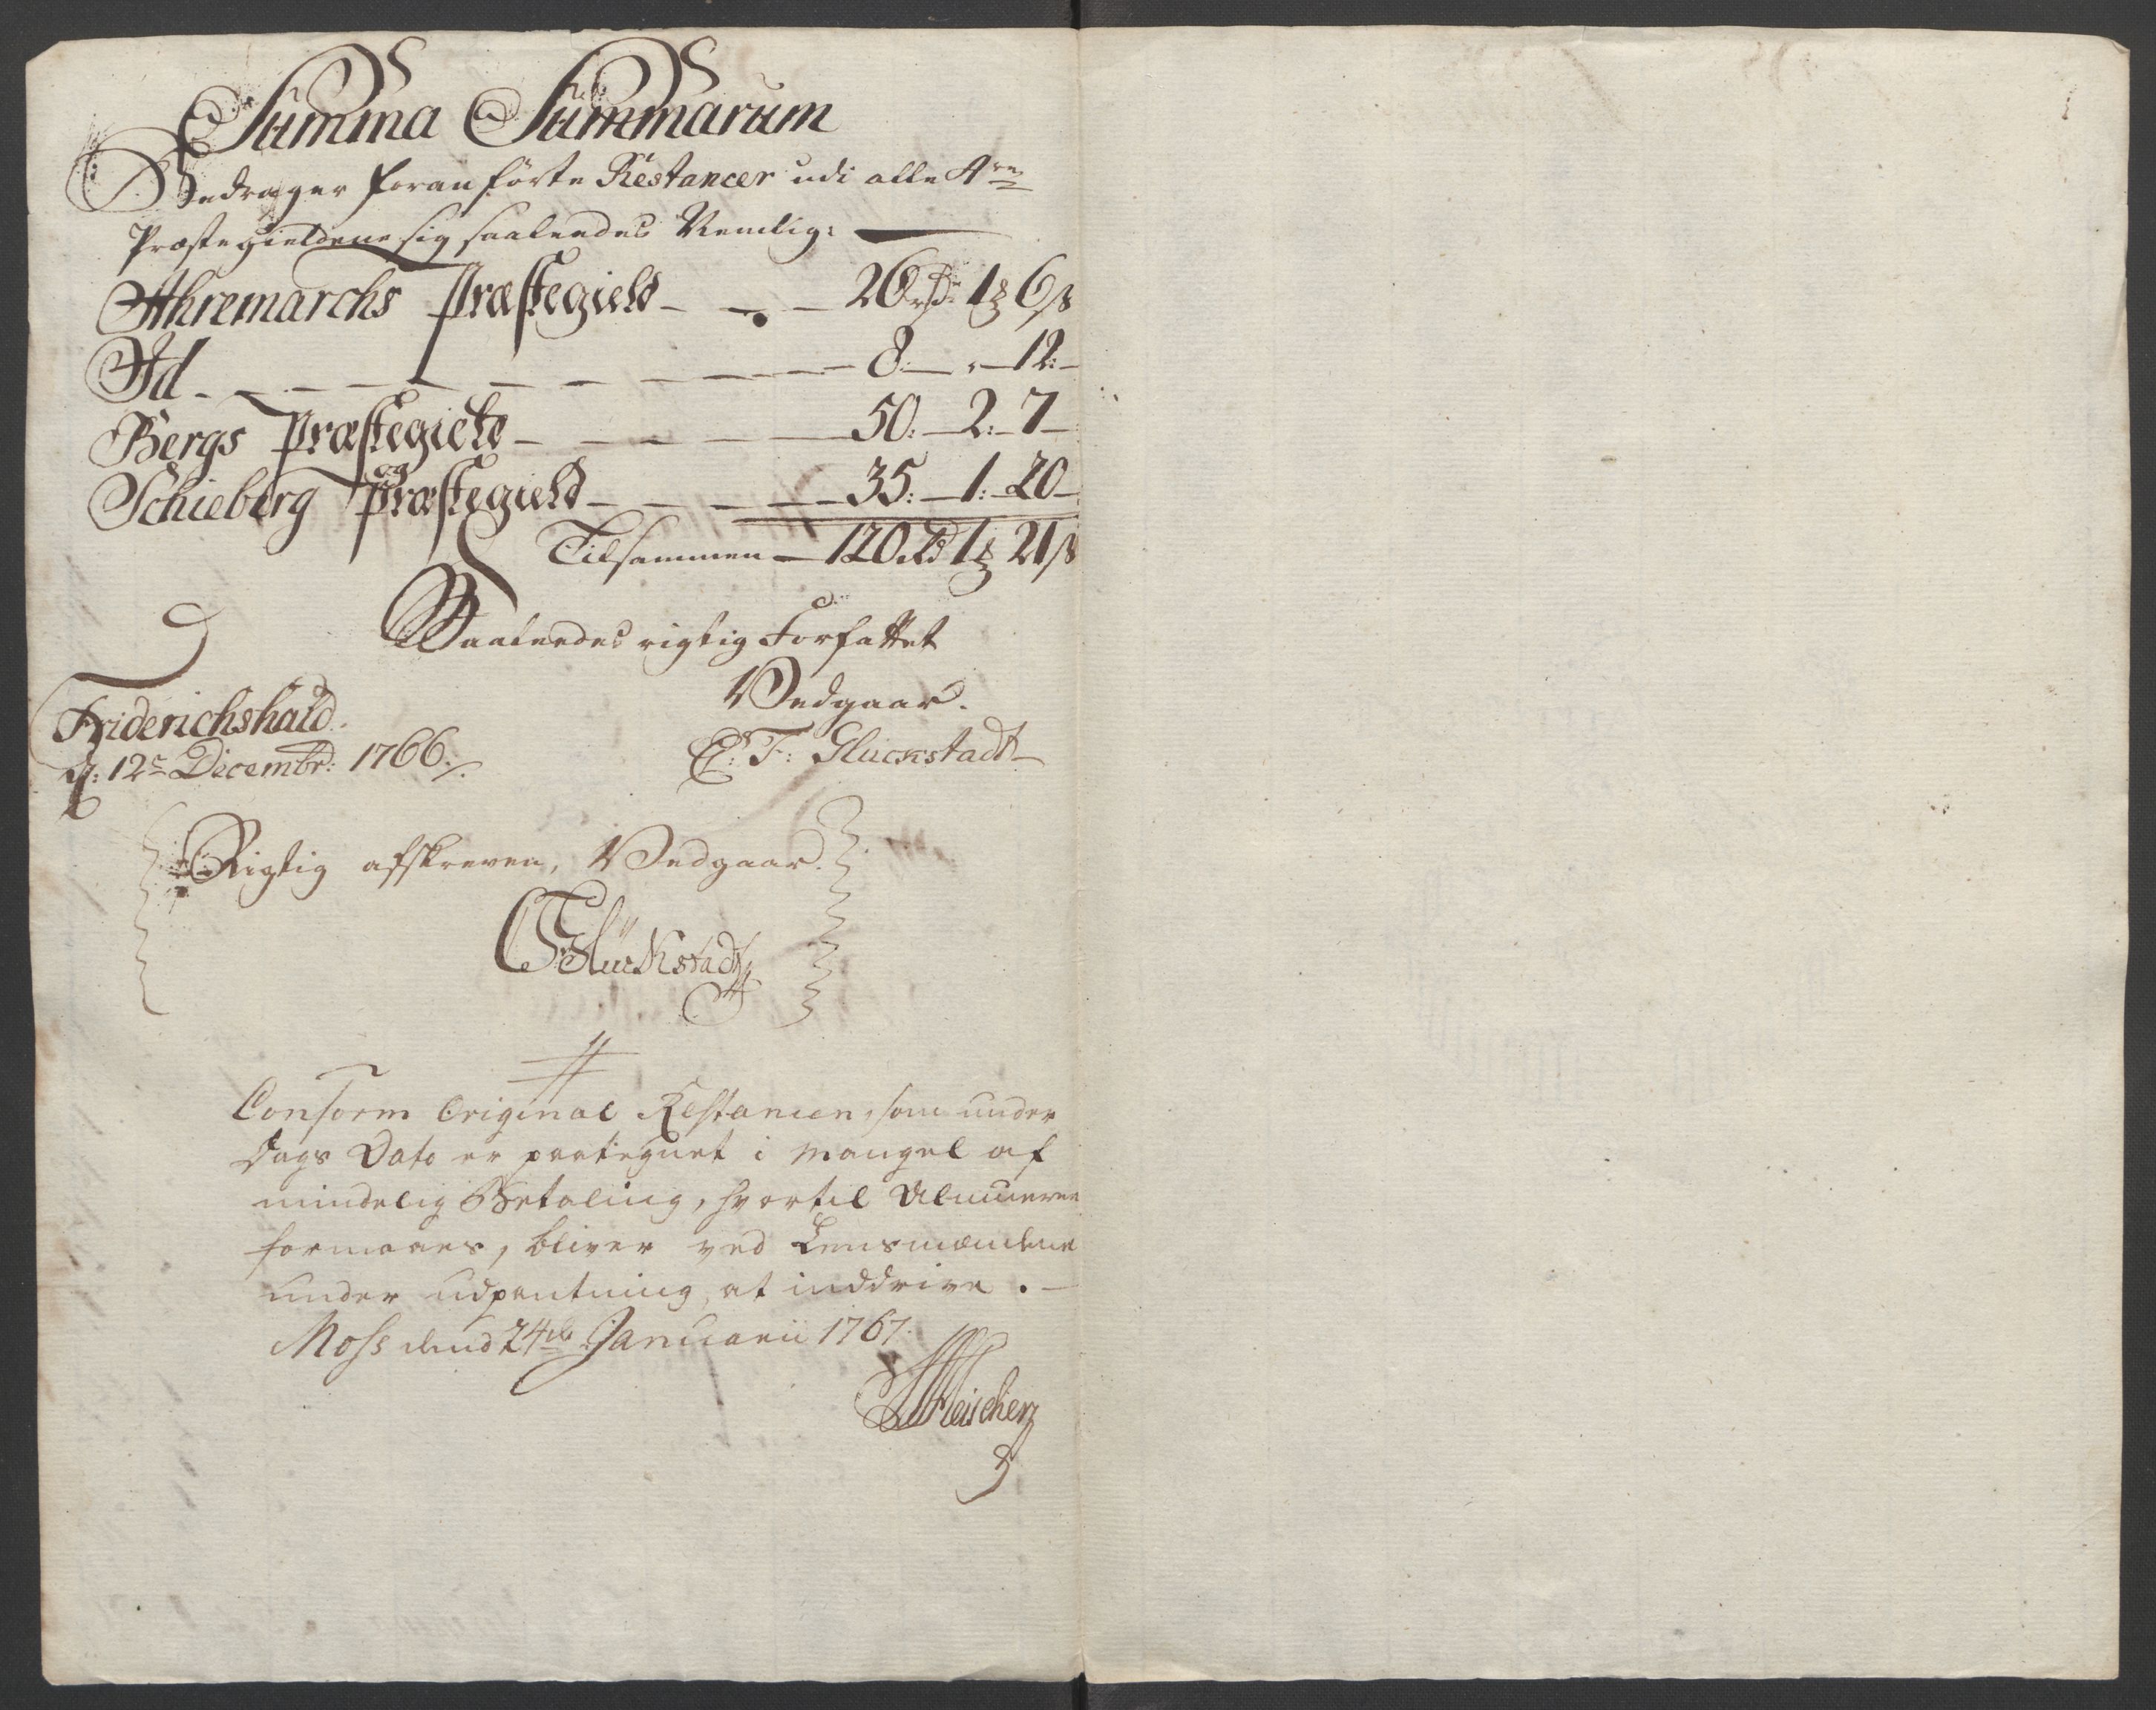 Summa Summarum
Bedrager foranförte Restancer udi alle 4re
Præstegieldene sig saaledes Nemlig:
Ahremarchs Præstegield - - - 26 rd 1 6 s
Id - - - - - - - - - 8: - „ - 12: -
Bergs Præstegield - - - - - 50: - 2: - 7 -
Schieberg og Præstegield - - - - - 35: - 1: 20 -
Tilsammen - 120 Rd 1 21 s
Saaledes rigtig Forfattet
Vedgaar.
Friderichshald.
d: 12te Decembr: 1766.
C: F: Gluckstadt
Rigtig afskreven, Vedgaar.
CFGlückstadt
Conform Original Restancen, som under
Dags Dato er paategnet i Mangel af
mindelig Betaling, hvortil Almuen
formaaes, bliver ved Lensmændene
under udpantning at inddrive. -
Moss dend 24de Januarii 1767.
Fleischer